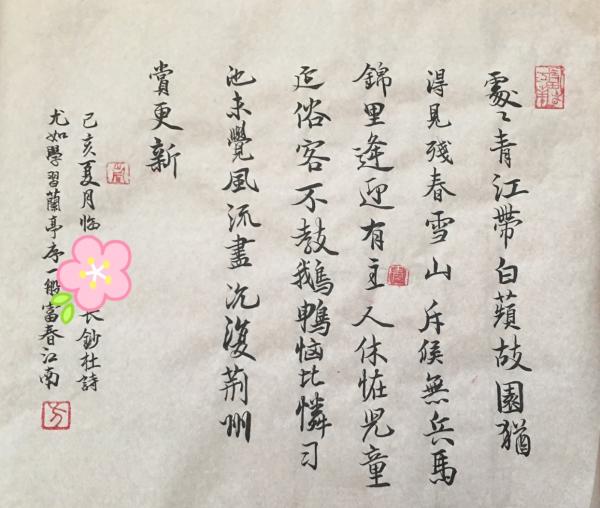 處〻青江帶白蘋故園猶
得見殘春雪山斥候無兵馬
錦里逢迎有主人休怪兒童
延俗客不教鵝鴨惱比憐习
池未覺風流盡況復荆州
賞更新
己亥夏月临長鈔杜詩
尤如學習蘭亭序一般富春江南